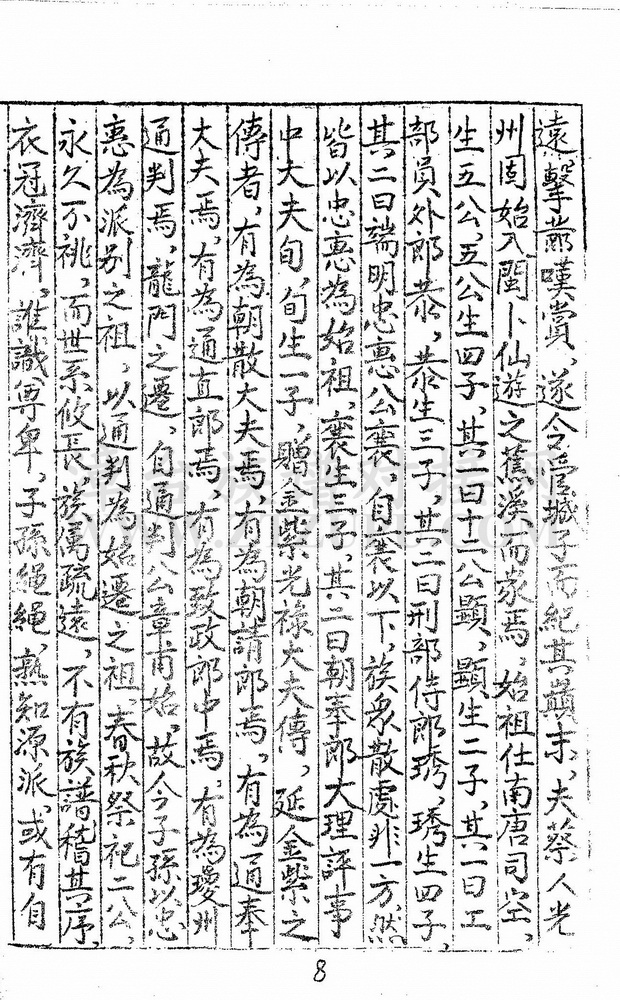 遠擊節嘆賞，遂令管城子而紀其巔末，夫蔡人光
州固始入閩卜仙遊之蕉溪而家焉，始祖仕南唐司空，
生五公，五公生四子，其二曰十二公顯，顯生二子，其一曰工
部員外郎恭，恭生三子，其二曰刑部侍郎琇，琇生四子，
其二曰端明忠惠八公襄，自襄以下，族衆散處非一方，然
皆以忠惠為始祖，襄生三子，其二曰朝奉郎大理評事
中大夫旬，旬生一子，贈金紫光祿大夫傳，延金紫之
傳者，有為朝散大夫焉，有為朝請郎焉，有為通奉
大夫焉，有為通直郎焉，有為致政郎中焉，有為瓊州
通判焉，龍門之遷，自通判公章甫始，故今子孫以忠
惠為派別之祖，以通判為始遷之祖，春秋祭祀二公，
永久不祧，而世系攸長，族屬疏遠，不有族譜稽其序，
衣冠濟濟，誰識尊卑，子孫繩繩，孰知源派，或有自
8